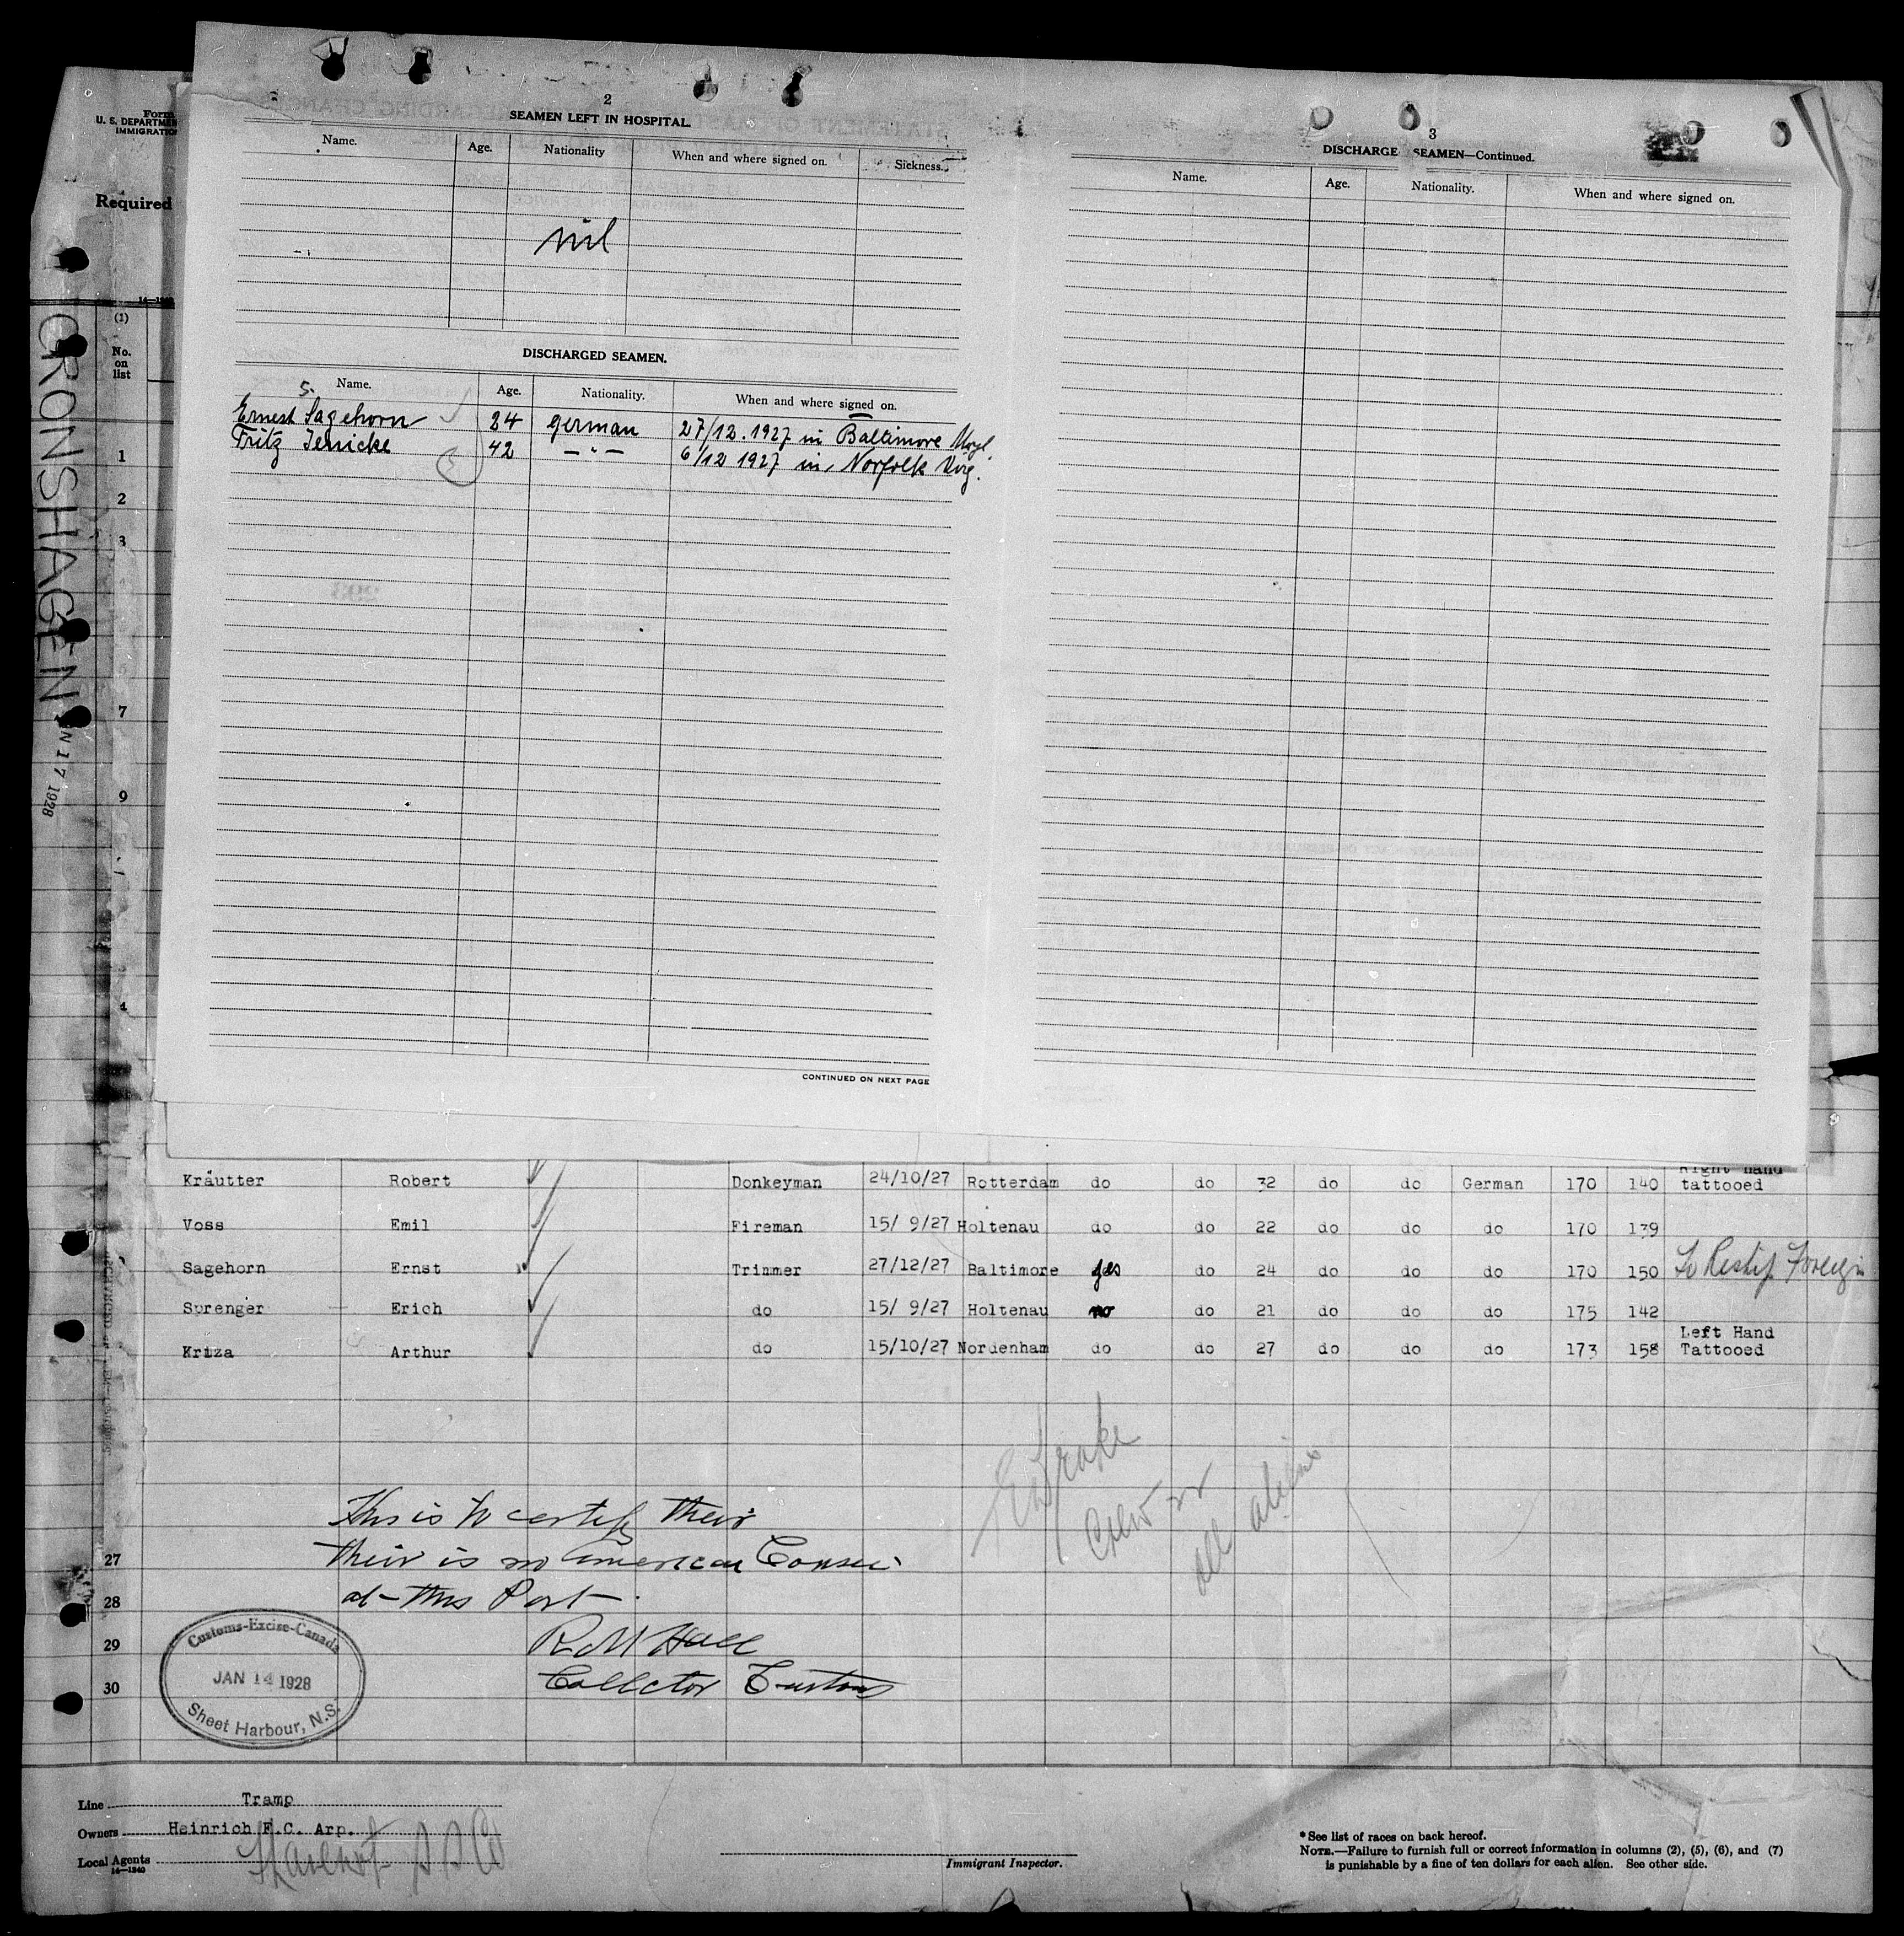 Form
U. S. DEPARTMEN
IMMIGRATIO
Required
(1)
No.
on
list
CRONSHAGEN
N 17 1928
1
2
3
7
9
4
2
SEAMEN LEFT IN HOSPITAL.
Name. Age. Nationality When and where signed on. Sickness.
nil
DISCHARGED SEAMEN.
Name. Age. Nationality. When and where signed on.
5.
Ernest Sagehorn 24 german 27/12.1927 in Baltimore Maryl.
Fritz Jenicke 42 — " — 6/12 1927 in Norfolk Virg.
CONTINUED ON NEXT PAGE
3
DISCHARGE SEAMEN—Continued.
Name. Age. Nationality. When and where signed on.
Right Hand
Kräutter Robert Donkeyman 24/10/27 Rotterdam do do 32 do do German 170 140 tattooed
Voss Emil Fireman 15/ 9/27 Holtenau do do 22 do do do 170 139
Sagehorn Ernst Trimmer 27/12/27 Baltimore yes do 24 do do do 170 150 To Reship Foreign
Sprenger Erich do 15/ 9/27 Holtenau no do 21 do do do 175 142
Left Hand
Kriza Arthur do 15/10/27 Nordenham do do 27 do do do 173 158 Tattooed
Drake
Crew
all aliens
This is to certify their
their is no American Consul
at this Port
R M Hall
Collector Customs
27
28
29
30
Customs-Excise-Canada
JAN 14 1928
Sheet Harbour, N.S.
Line Tramp
Owners Heinrich F.C. Arp.
Local Agents
14—1240
Immigrant Inspector.
* See list of races on back hereof.
NOTE.—Failure to furnish full or correct information in columns (2), (5), (6), and (7)
is punishable by a fine of ten dollars for each alien. See other side.